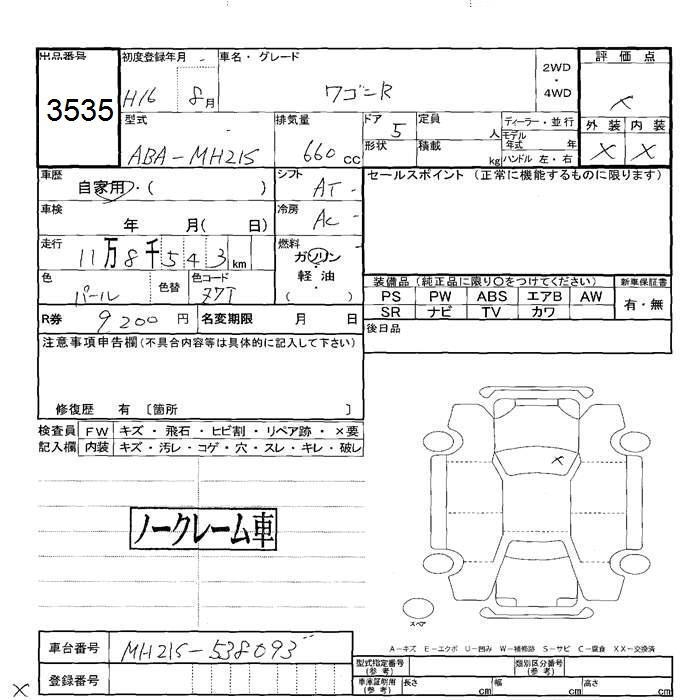 出品番号
3535
初度登録年月
H16 8月
車名・グレード
ワゴンR
2WD
・
4WD
評価点
×
外装 内装
× ×
型式
ABA-MH21S
排気量
660 cc
ドア 5
形状
定員 人
積載 kg
ディーラー・並行
モデル年式 年
ハンドル 左・右
車歴
自家用・( )
シフト
AT
車検
年 月( 日)
冷房
AC
走行
11万8千543km
燃料
ガソリン
軽油
( )
色
パール
色替
色コード
Z7T
R券 9200円
名変期限 月 日
セールスポイント(正常に機能するものに限ります)
装備品(純正品に限り〇をつけてください)
新車保証書
PS PW ABS エアB AW
有・無
SR ナビ TV カワ
後日品
注意事項申告欄(不具合内容等は具体的に記入して下さい)
修復歴 有 〔箇所 〕
検査員 FW キズ・飛石・ヒビ割・リペア跡・×要
記入欄 内装 キズ・汚レ・コゲ・穴・スレ・キレ・破レ
×
ノークレーム車
スペア
A-キズ E-エクボ U-凹み W-補修跡 S-サビ C-腐食 XX-交換済
車台番号 MH21S-538093
登録番号
型式指定番号(参考)
類別区分番号(参考)
車庫証明用(参考) 長さ cm 幅 cm 高さ cm
×